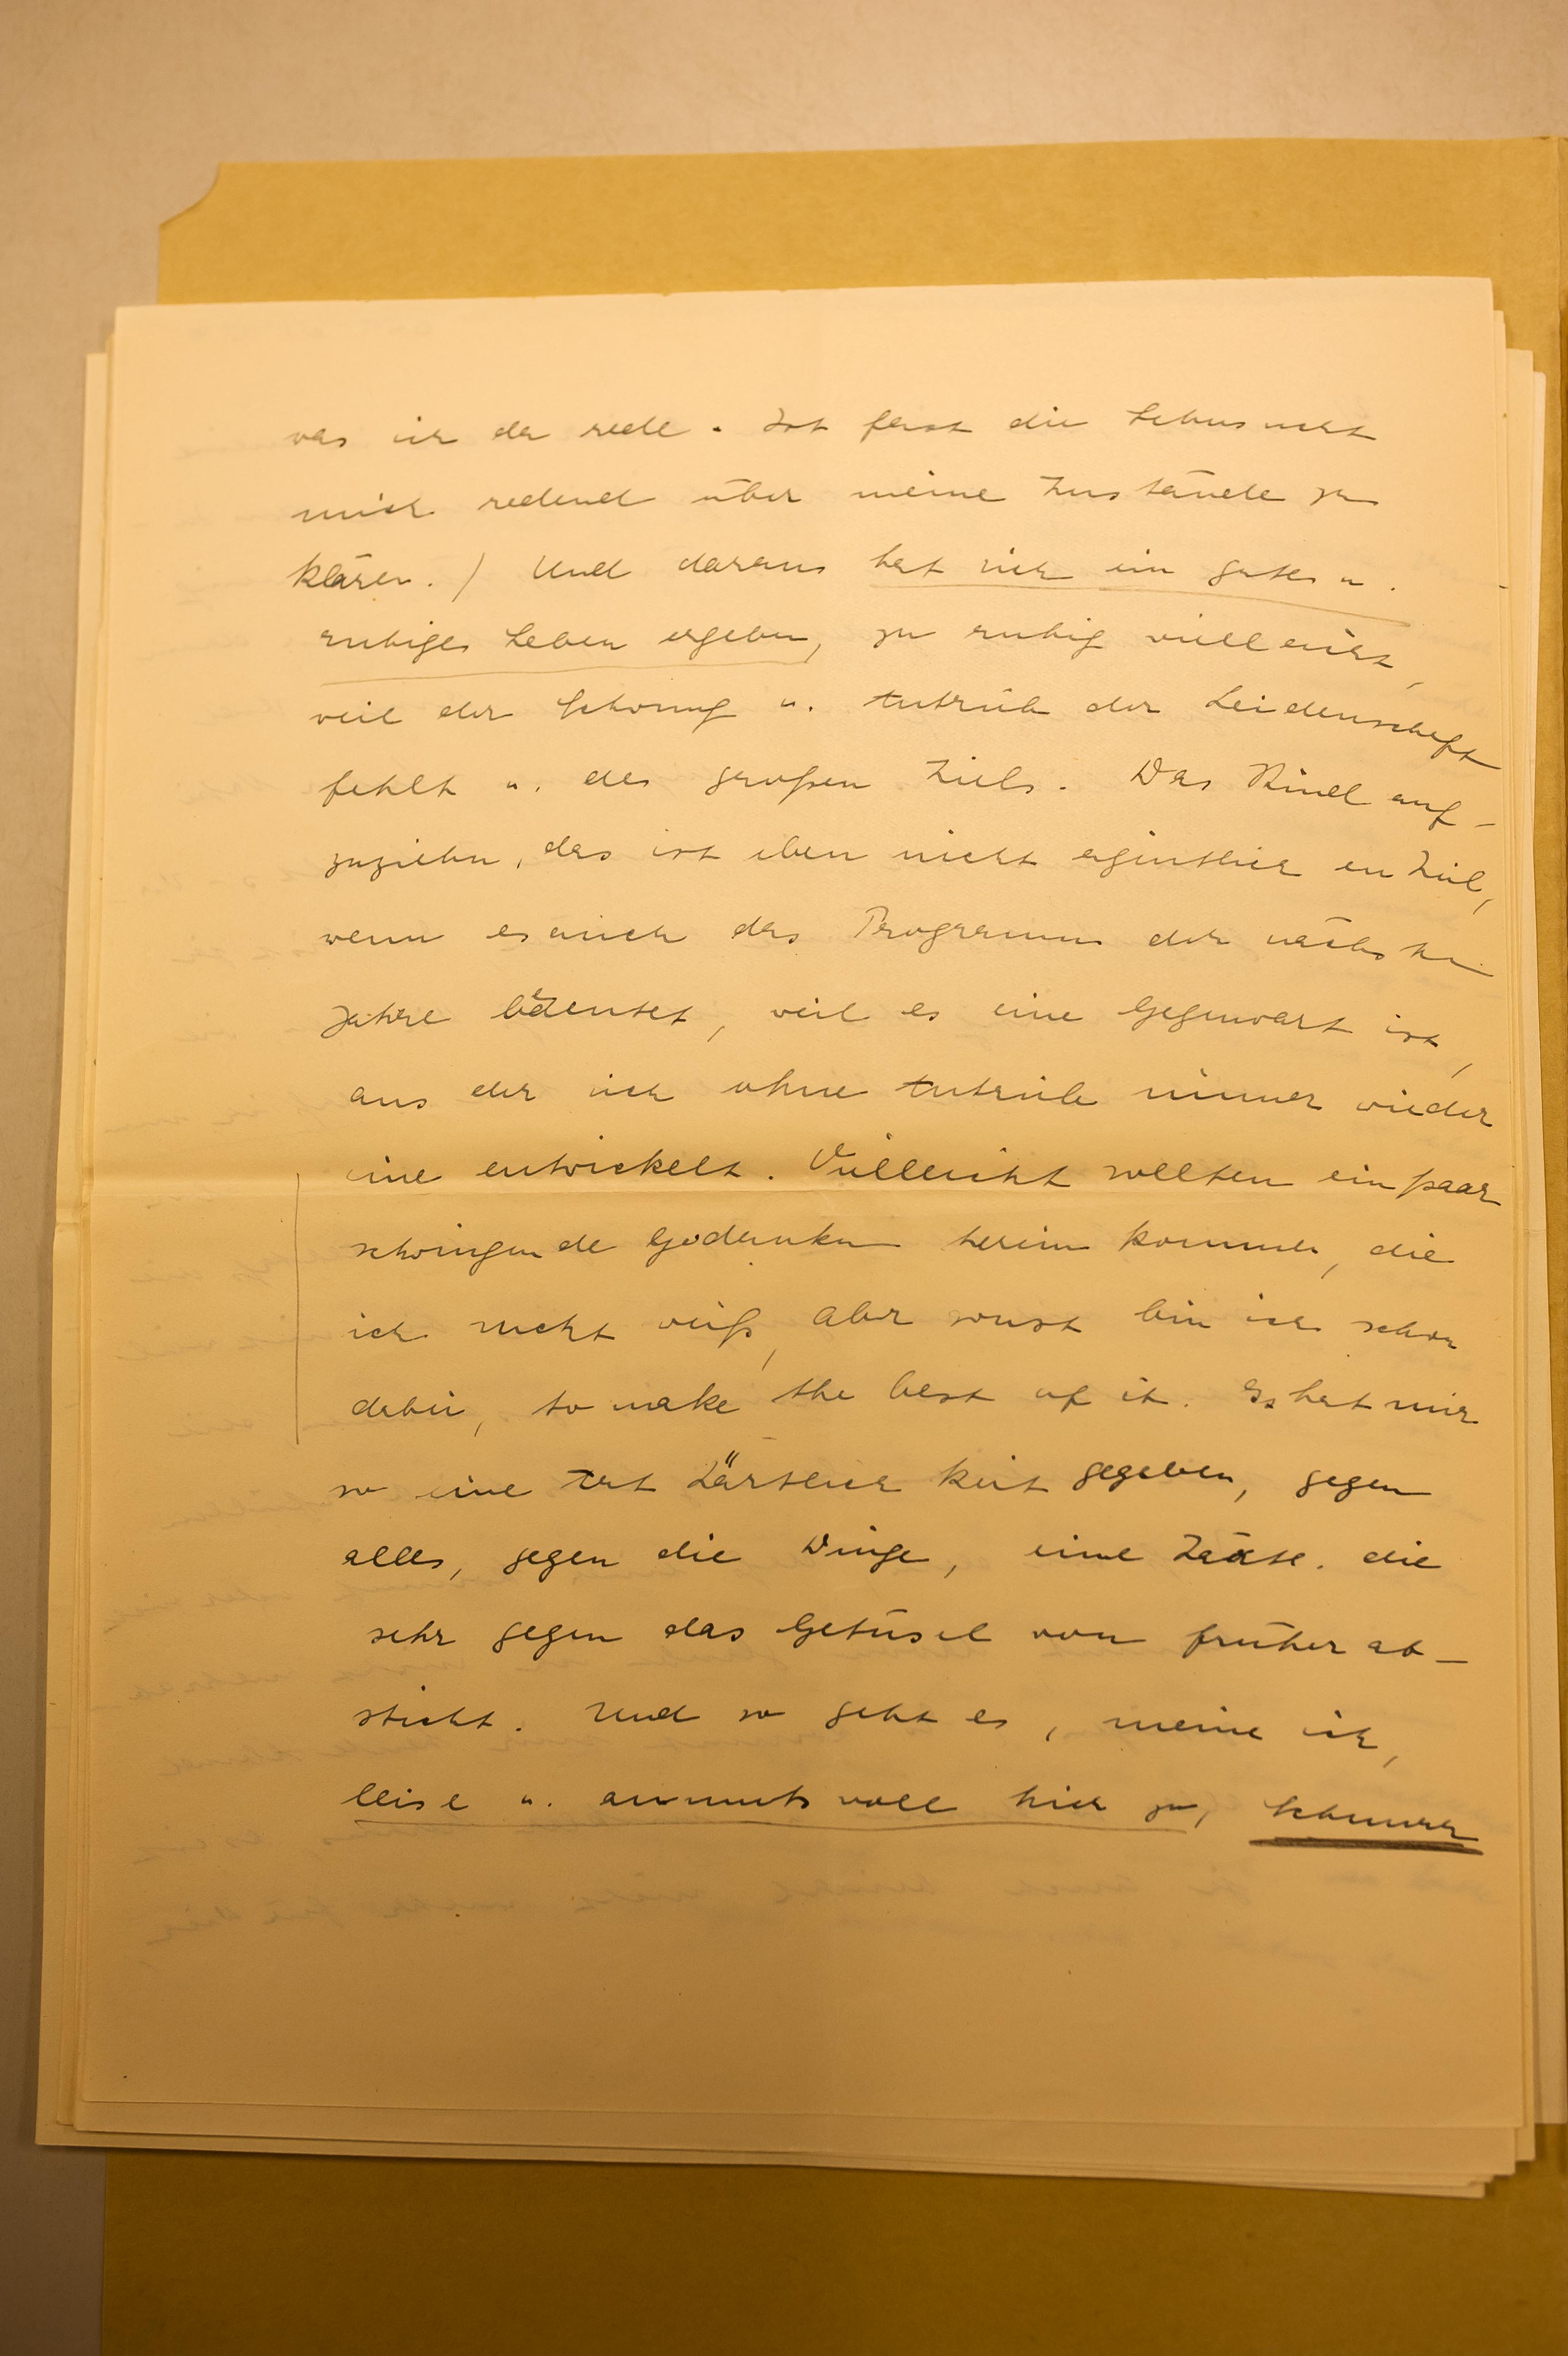 was ich da rede. Ist fast die Sehnsucht
mich redend über meine Zustände zu
klären.) Und daraus hat sich ein gutes u.
ruhiges Leben ergeben, zu ruhig vielleicht,
weil der Schwung u. Antrieb der Leidenschaft
fehlt u. des großen Ziels. Das Kind auf-
zuziehn, das ist eben nicht eigentlich ein Ziel,
wenn es auch das Programm der nächsten
Jahre bedeutet, weil es eine Gegenwart ist,
aus der sich ohne Antrieb immer wieder
eine entwickelt. Vielleicht sollten ein paar
schwingende Gedanken herein kommen, die
ich nicht weiß, aber sonst bin ich schon
dabei, to make the best of it. Es hat mir
so eine Art Zärtlichkeit gegeben, gegen
alles, gegen die Dinge, eine die
sehr gegen das Getüsel von früher ab-
sticht. Und so geht es, meine ich,
leise u. anmutsvoll hier zu,